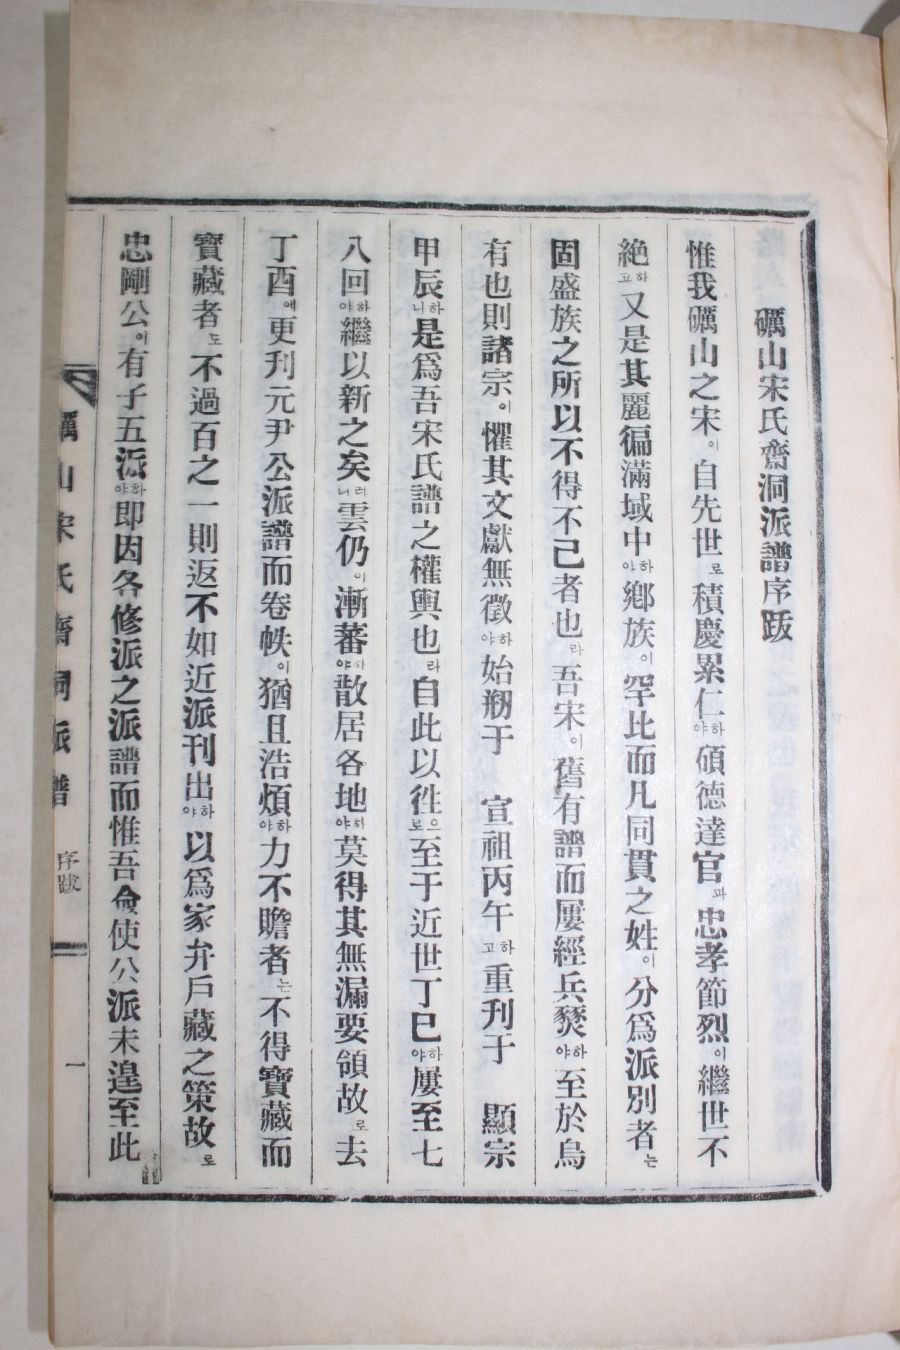 礪山宋氏齋洞派譜序跋
惟我礪山之宋이自先世로積慶累仁하야碩德達官과忠孝節烈이繼世不
絶하고又是其麗徧滿域中하야鄕族이罕比而凡同貫之姓이分爲派別者는
固盛族之所以不得不已者也라吾宋이舊有譜而屢經兵燹하야至於烏
有也則諸宗이懼其文獻無徵하야始刱于 宣祖丙午하고重刊于 顯宗
甲辰하니是爲吾宋氏譜之權輿也라自此以徃으로至于近世丁巳하야屢至七
八回하야繼以新之矣러니雲仍이漸蕃하야散居各地하야莫得其無漏要領故로去
丁酉에更刋元尹公派譜而卷帙이猶且浩煩하야力不贍者는不得寶藏而
寶藏者도不過百之一則返不如近派刊出하야以爲家弁戶藏之策故로
忠剛公이有子五派하야即因各修派之派譜而惟吾僉使公派未遑至此
礪山宋氏齋洞派譜 序跋 一